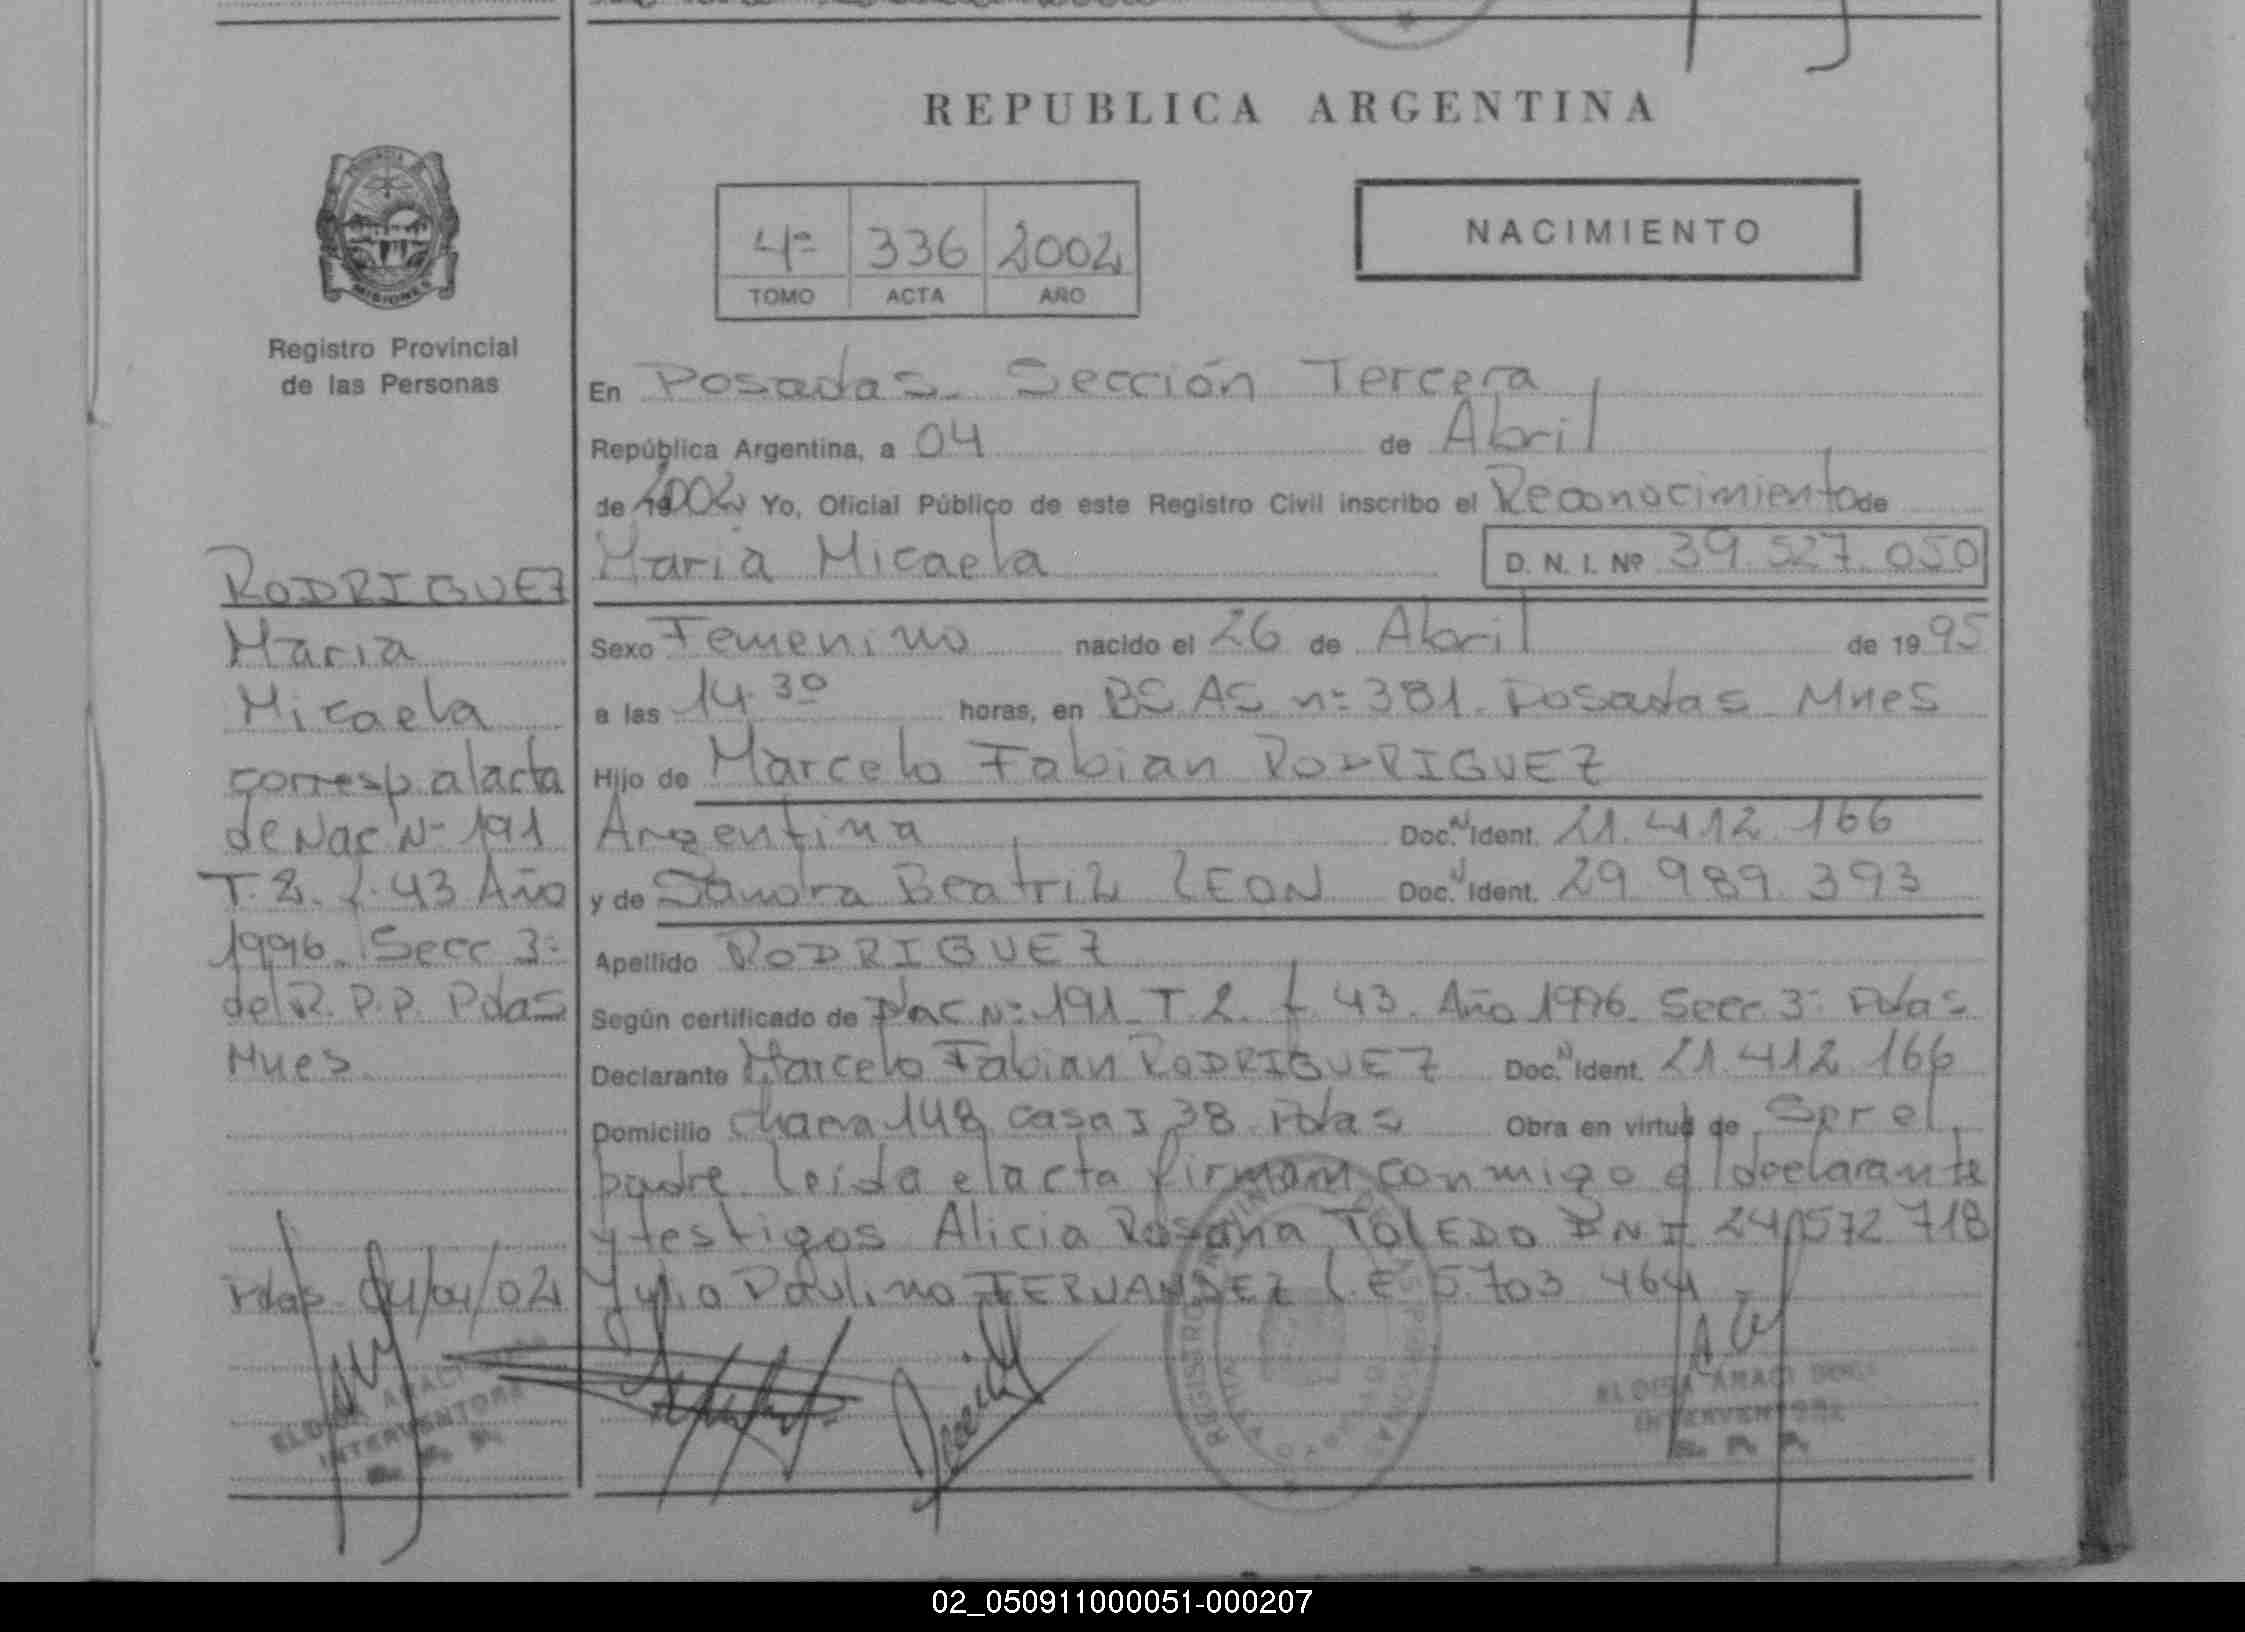 REPUBLICA ARGENTINA
MISIONES
Registro Provincial
de las Personas
4º 336 2002
TOMO ACTA AÑO
NACIMIENTO
En Posadas Sección Tercera
República Argentina, a 04 de Abril
de 2002 Yo, Oficial Público de este Registro Civil inscribo el Reconocimiento de
Maria Micaela D. N. I. Nº 39.527.050
Sexo Femenino nacido el 26 de Abril de 1995
a las 14.30 horas, en BS AS nº 381. Posadas Mnes
Hijo de Marcelo Fabian RODRIGUEZ
Argentina Doc. Ident. 21.412.166
y de Sandra Beatriz LEON Doc. Ident. 29.989.393
Apellido RODRIGUEZ
Según certificado de Nac Nº 191 T. 2. f. 43. Año 1996. Secc. 3º Pdas
Declarante Marcelo Fabian RODRIGUEZ Doc. Ident. 21.412.166
Domicilio chacra 148 casa 38 Pdas Obra en virtud de Ser el
padre. Leída el acta firman conmigo el declarante
y testigos Alicia Rosana TOLEDO DNI 24.572.718
Julio Paulino FERNANDEZ L.E 5.703.464
RODRIGUEZ
Maria
Micaela
corresp. al acta
de Nac Nº 191
T. 2. f. 43 Año
1996. Secc 3º
del R. P. P. Pdas
Mnes
Pdas 04/04/02
INTERVENTORA
ELOISA ARACI
INTERVENTORA
R. P. P.
02_050911000051-000207